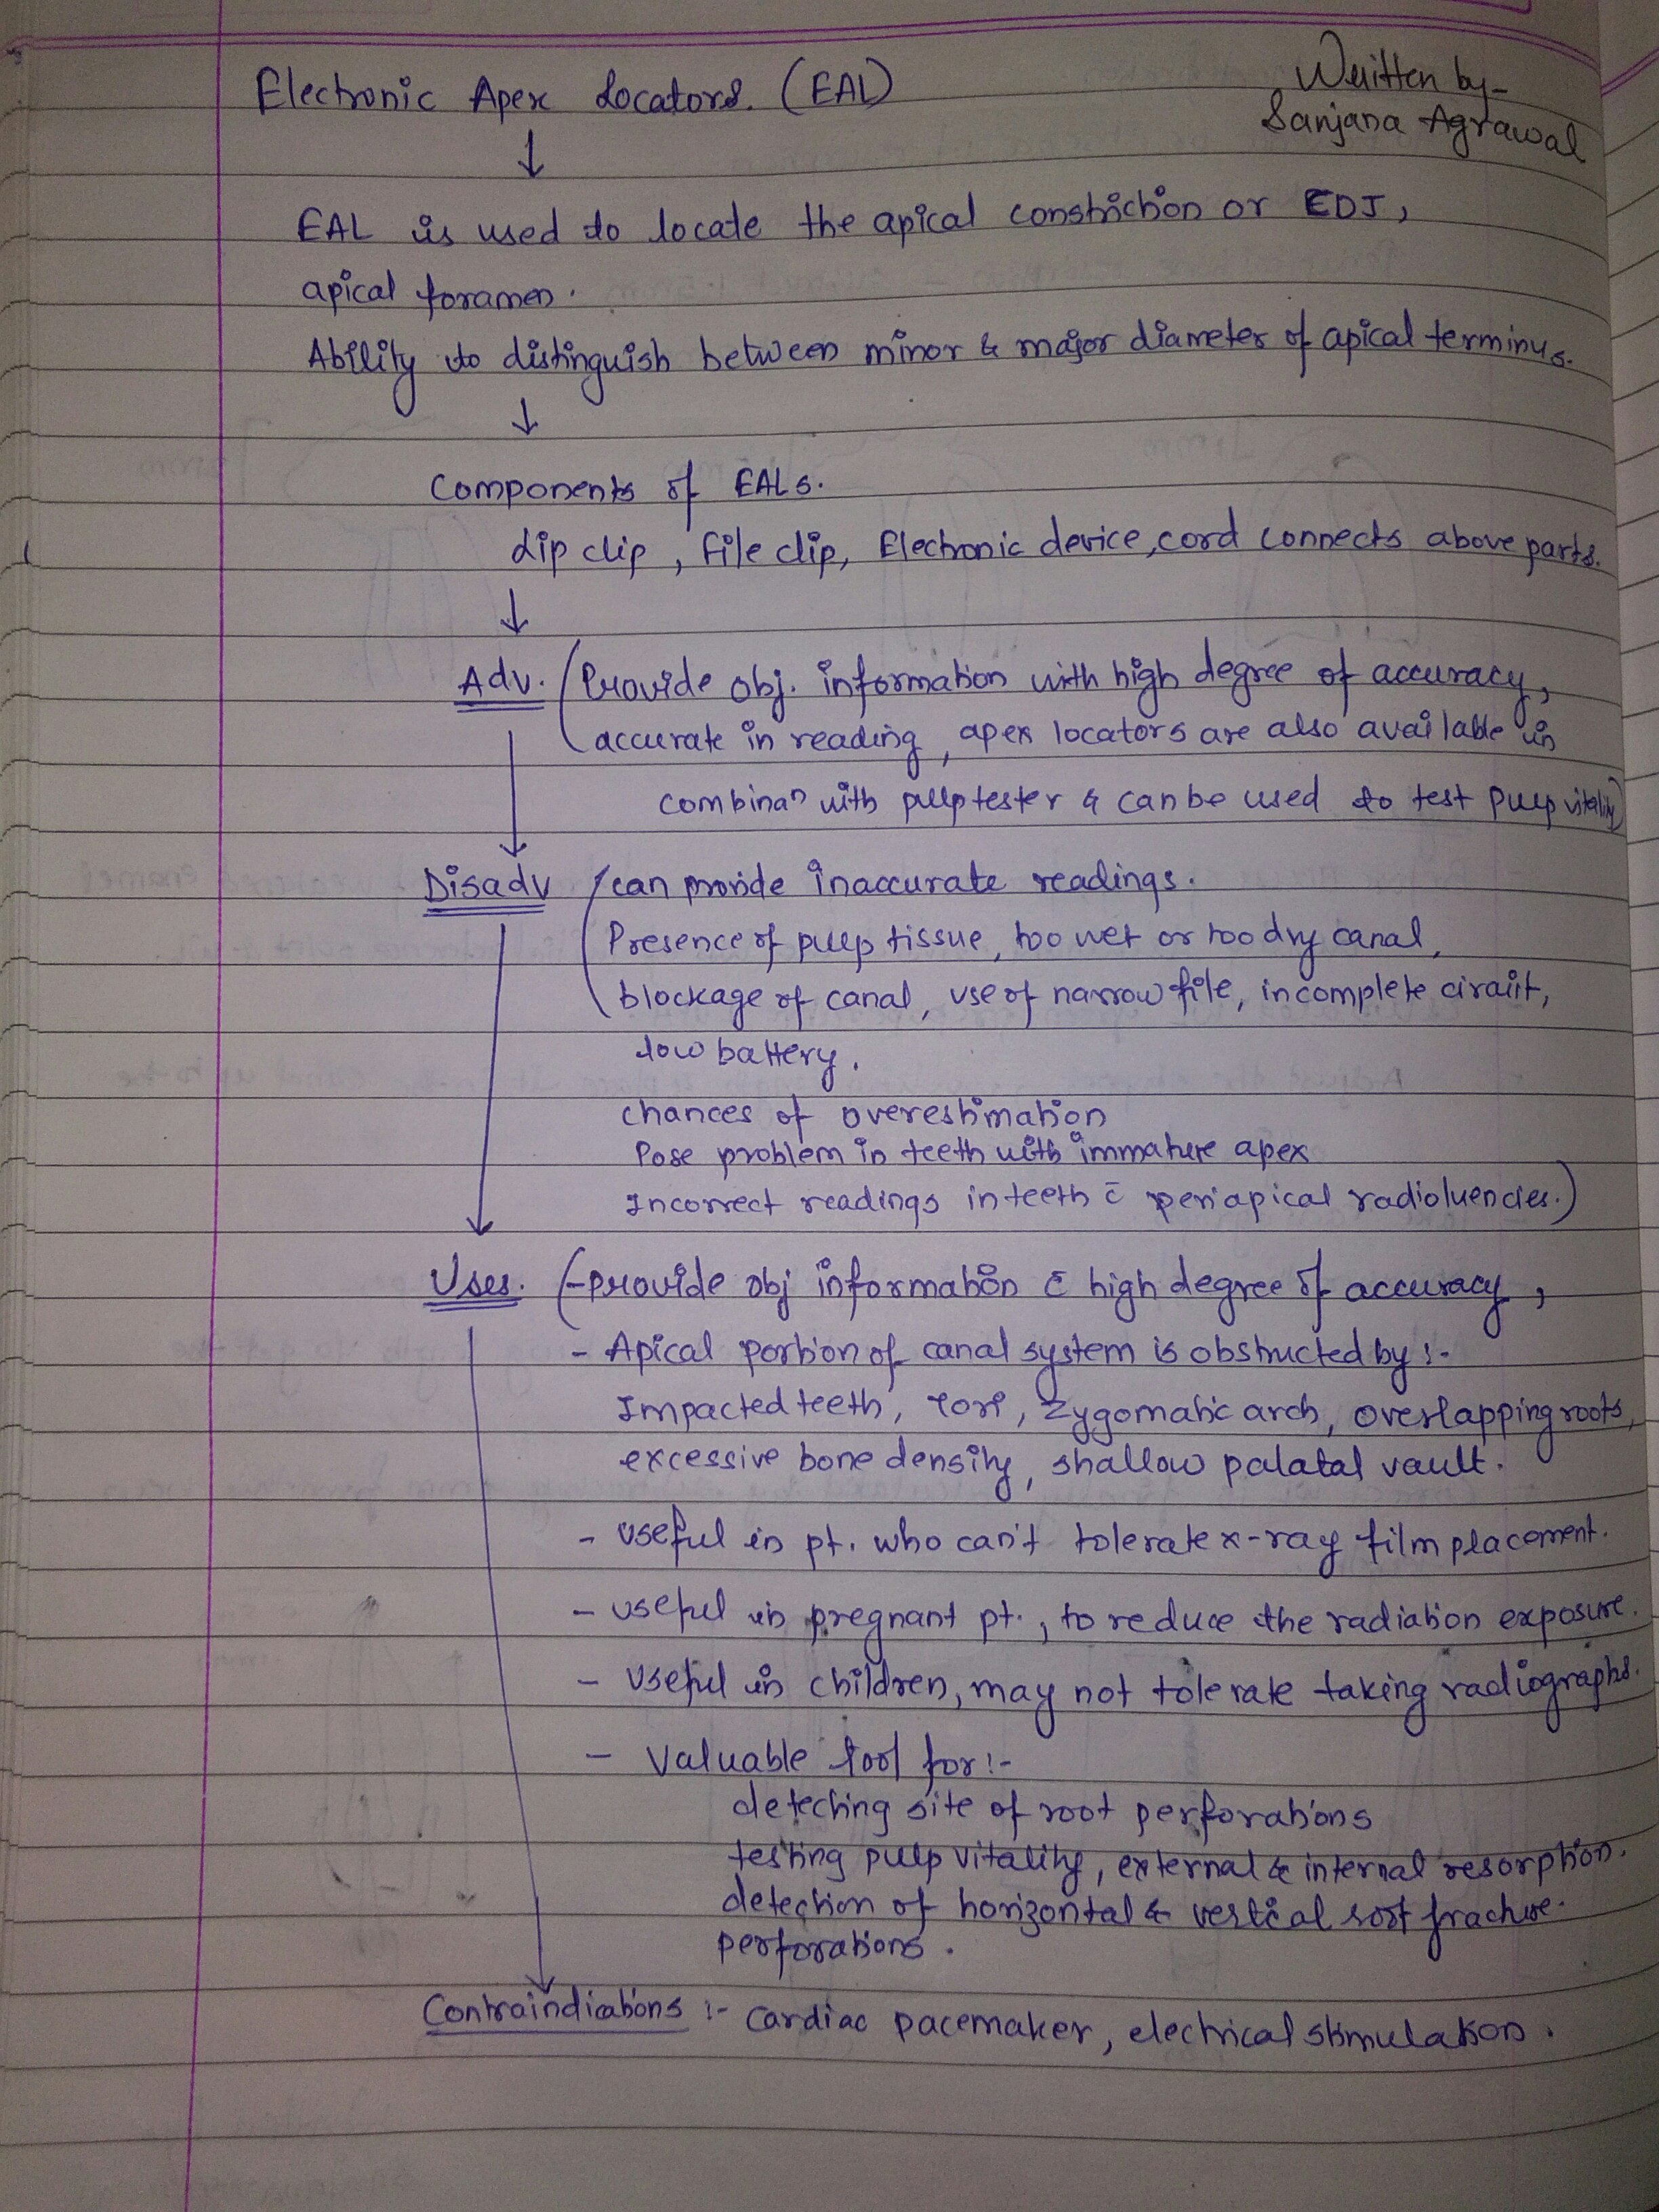 Electronic Apex Locators. (EAL)
Written by-
Sanjana Agrawal
↓
EAL is used to locate the apical constriction or EDJ,
apical foramen.
Ability to distinguish between minor & major diameter of apical terminus.
↓
Components of EALs.
Lip clip, File clip, Electronic device, cord connects above parts.
↓
Adv. (Provide obj. information with high degree of accuracy,
accurate in reading, apex locators are also available in
combinaⁿ with pulp tester & can be used to test pulp vitality)
Disadv (can provide inaccurate readings.
Presence of pulp tissue, too wet or too dry canal,
blockage of canal, use of narrow file, incomplete circuit,
low battery.
chances of overestimation
Pose problem in teeth with immature apex
Incorrect readings in teeth c̄ periapical radioluencies.)
Uses. (-provide obj information c̄ high degree of accuracy,
- Apical portion of canal system is obstructed by :-
Impacted teeth, Tori, Zygomatic arch, overlapping roots,
excessive bone density, shallow palatal vault.
- useful in pt. who can't tolerate x-ray film placement.
- useful in pregnant pt., to reduce the radiation exposure.
- useful in children, may not tolerate taking radiographs.
- Valuable tool for :-
detecting site of root perforations
testing pulp vitality, external & internal resorption.
detection of horizontal & vertical root fracture.
perforations.
Contraindications :- Cardiac pacemaker, electrical stimulation.